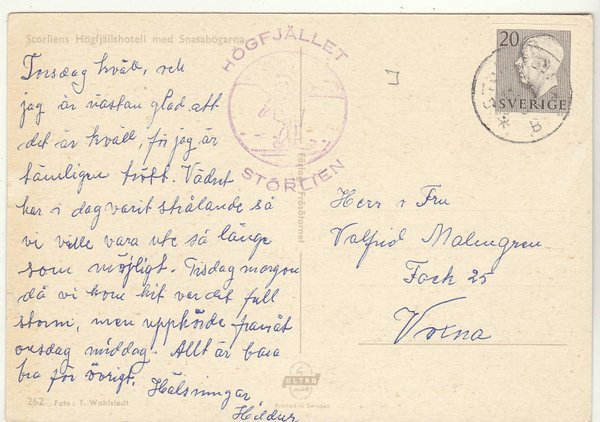 Storliens Högfjällshotell med Snasahögarna
Torsdag kväll, och
jag är nästan glad att
det är kväll, för jag är
tämligen trött. Vädret
har i dag varit strålande så
vi ville vara ute så länge
som möjligt. Tisdag morgon
då vi kom hit var det full
storm, men upphörde framåt
onsdag middag. Allt är bara
bra för övrigt. Hälsningar
Hildur
262 Foto: T. Wahlstedt
HÖGFJÄLLET
STORLIEN
ULTRA
Printed in Sweden
20
SVERIGE
Herr o Fru
Valfrid Malmgren
Fack 25
Voxna